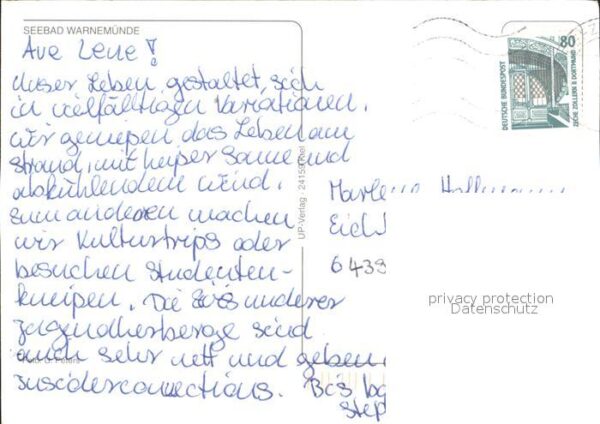 SEEBAD WARNEMÜNDE
Ave Lene!
Unser Leben gestaltet sich
in vielfältigen Variationen.
Wir genießen das Leben am
Strand, mit heißer Sonne und
abkühlendem Wind.
Zum anderen machen
wir Kulturtrips oder
besuchen Studenten-
kneipen. Die unserer
Jugendherberge sind
auch sehr nett und geben
Insiderconnections. Bis
Step
UP-Verlag · 24159 Kiel
80
DEUTSCHE BUNDESPOST
ZECHE ZOLLERN II DORTMUND
Eich
6439
privacy protection
Datenschutz